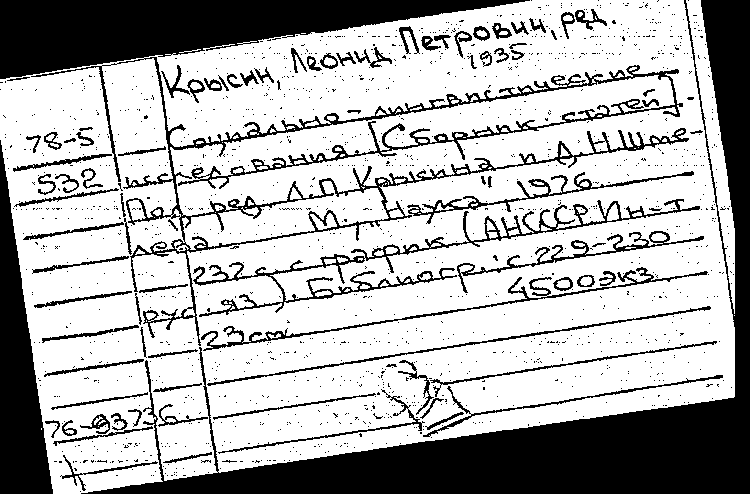 Крысин, Леонид Петрович, ред.
1935
78-5 Социально-лингвистические
532 исследования. [Сборник статей].
Под ред. Л.П. Крысина и Д.Н. Шме-
лева. М., "Наука", 1976
232 с. с график (АНСССР. Ин-т
рус. яз). Библиогр.: с 229-230
23 cm. 4500экз
76-93736.